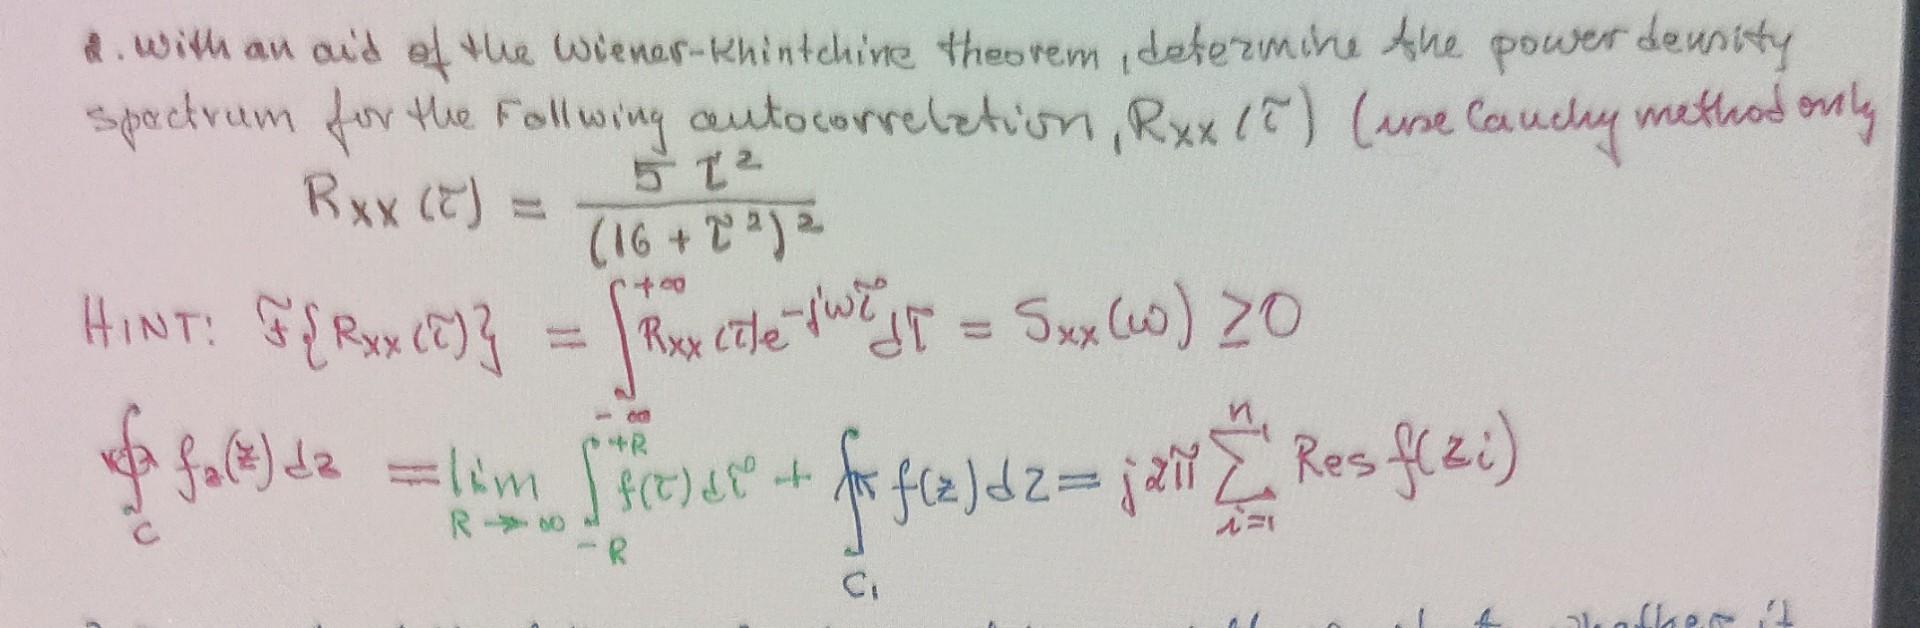 2. With an aid of the Wiener-Khintchine theorem, determine the power density
spectrum for the Follwing autocorrelation, Rxx (τ) (use Cauchy method only
Rxx (τ) = 5 τ² / (16 + τ²)²
HINT: F{Rxx(τ)} = ∫_{-∞}^{+∞} Rxx(τ)e^{-jωτ}dτ = Sxx(ω) ≥0
∮_C f₂(z)dz = lim_{R→∞} ∫_{-R}^{+R} f(τ)dτ + ∮_{C₁} f(z)dz = j2π ∑_{i=1}^{n} Res f(zi)